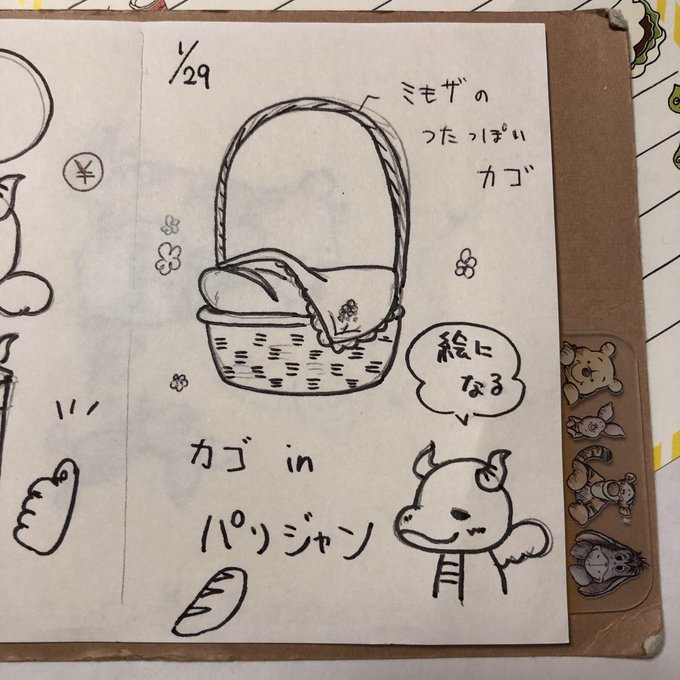 1/29
ミモザの
つたっぽい
カゴ
¥
絵に
なる
カゴ in
パリジャン